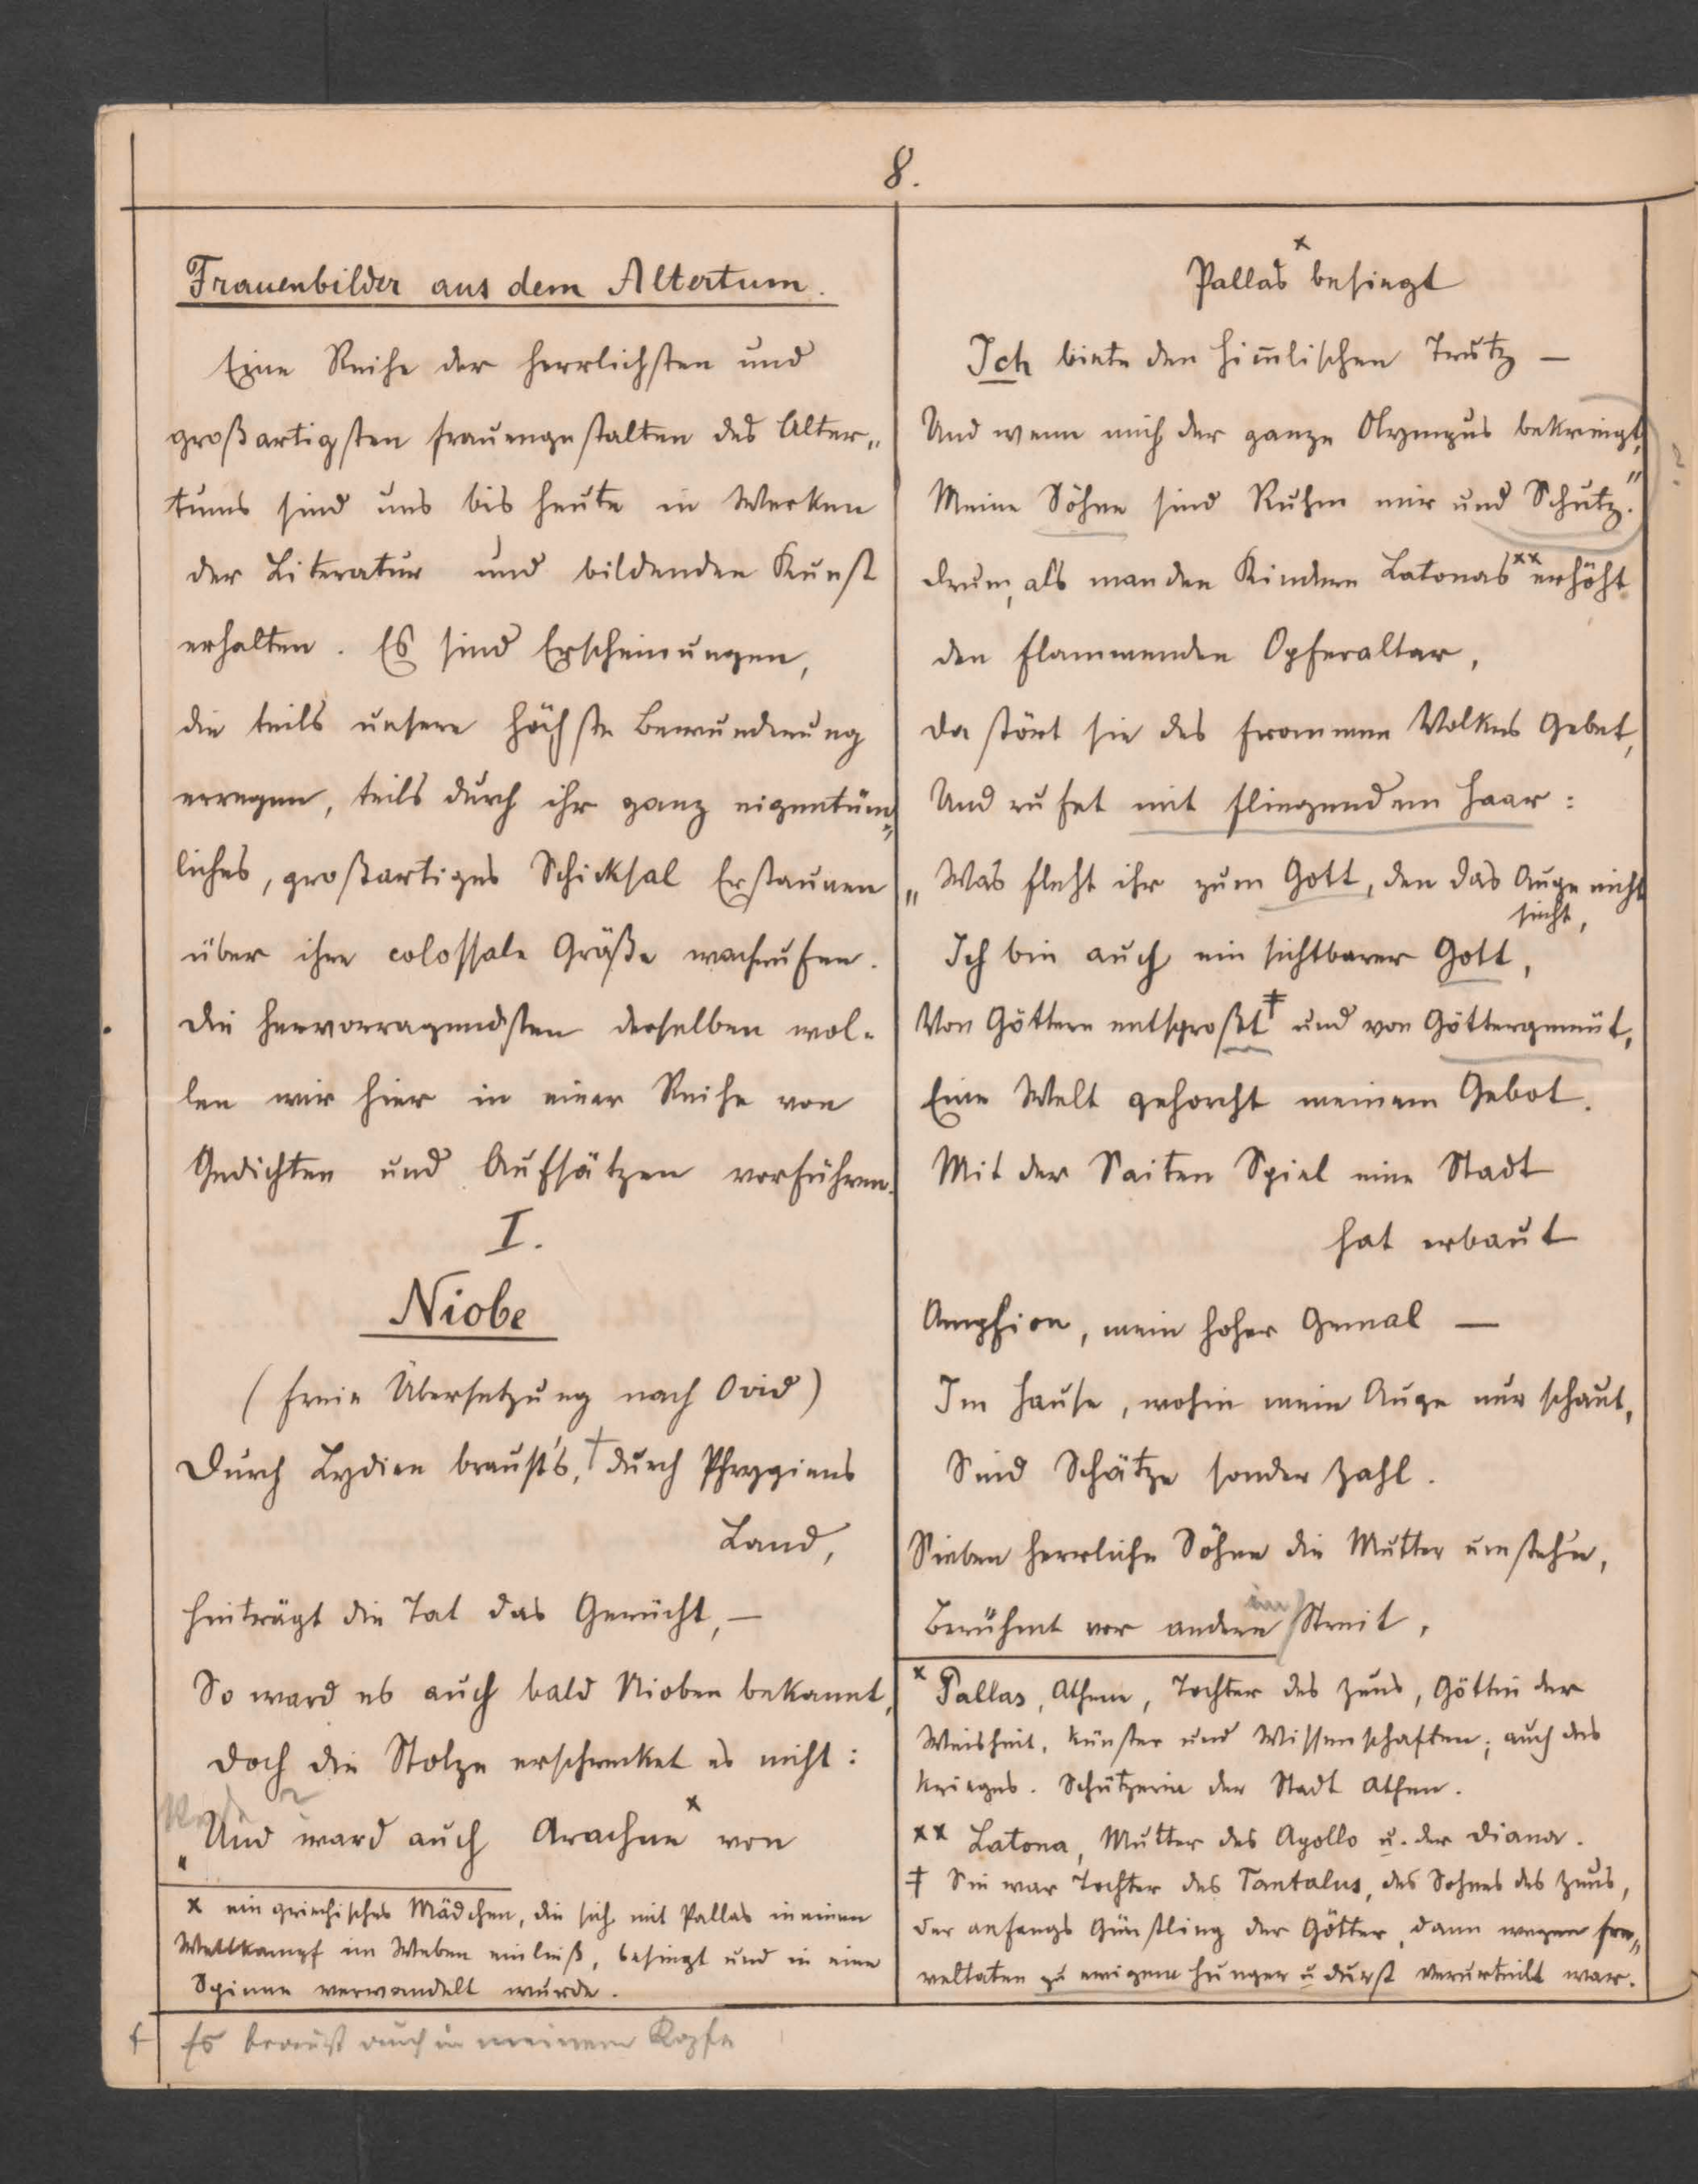 8.
Frauenbilder aus dem Altertum.
Eine Reihe der herrlichsten und
großartigsten Frauengestalten des Alter„
tums sind uns bis heute in Werken
der Literatur und bildenden Kunst
erhalten. Es sind Erscheinungen,
die teils unsere höchste Bewunderung
erregen, teils durch ihr ganz eigentüm„
liches, großartiges Schicksal Erstaunen
über ihre colossale Größe wachrufen.
Die hervorragendsten derselben wol-
len wir hier in einer Reihe von
Gedichten und Aufsätzen vorführen.
I.
Niobe
(Freie Übersetzung nach Ovid)
Durch Lydien braust's, † durch Phrygiens
Land,
Hinträgt die Tat das Gerücht, —
So ward es auch bald Nioben bekannt,
Doch die Stolze erschrecket es nicht:
„Und ward auch Arachne x von
x ein griechisches Mädchen, die sich mit Pallas in einen
Wettkampf im Weben einließ, besiegt und in eine
Spinne verwandelt wurde.
† Es braust auch in meinem Kopfe
Pallas x besiegt
Ich biete den Him̄lischen Trutz —
Und wenn mich der ganze Olympus bekriegt,
Meine Söhne sind Ruhm mir und Schutz."
?
Drum, als man den Kindern Latonas xx erhöht
Den flammenden Opferaltar,
Da stört sie des frommen Volkes Gebet,
Und rufet mit fliegendem Haar:
„Was fleht ihr zum Gott, den das Auge nicht
sieht,
Ich bin auch ein sichtbarer Gott,
Von Göttern entsproßt ‡ und von Göttergemüt,
Eine Welt gehorcht meinem Gebot.
Mit der Saiten Spiel eine Stadt
hat erbaut
Amphion, mein hoher Gemal —
Im Hause, wohin mein Auge nur schaut,
Sind Schätze sonder Zahl.
Sieben herrliche Söhne die Mutter umsteh'n,
Berühmt vor andern im Streit,
x Pallas, Athene, Tochter des Zeus, Göttin der
Weisheit, Künste und Wissenschaften; auch des
Krieges. Schützerin der Stadt Athen.
xx Latona, Mutter des Apollo u. der Diana.
‡ Sie war Tochter des Tantalus, des Sohnes des Zeus,
der anfangs Günstling der Götter, dann wegen Fre„
veltaten zu ewigem Hunger u Durst verurteilt war.